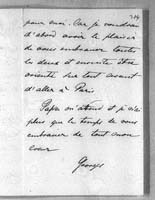 pour moi. Car je voudrais
d'abord avoir le plaisir
de vous embrasser toutes
les deux et ensuite être
orienté sur tout avant
d'aller à Paris.
Papa m'attend et je n'ai
plus que le temps de vous
embrasser de tout mon
cœur
Georges